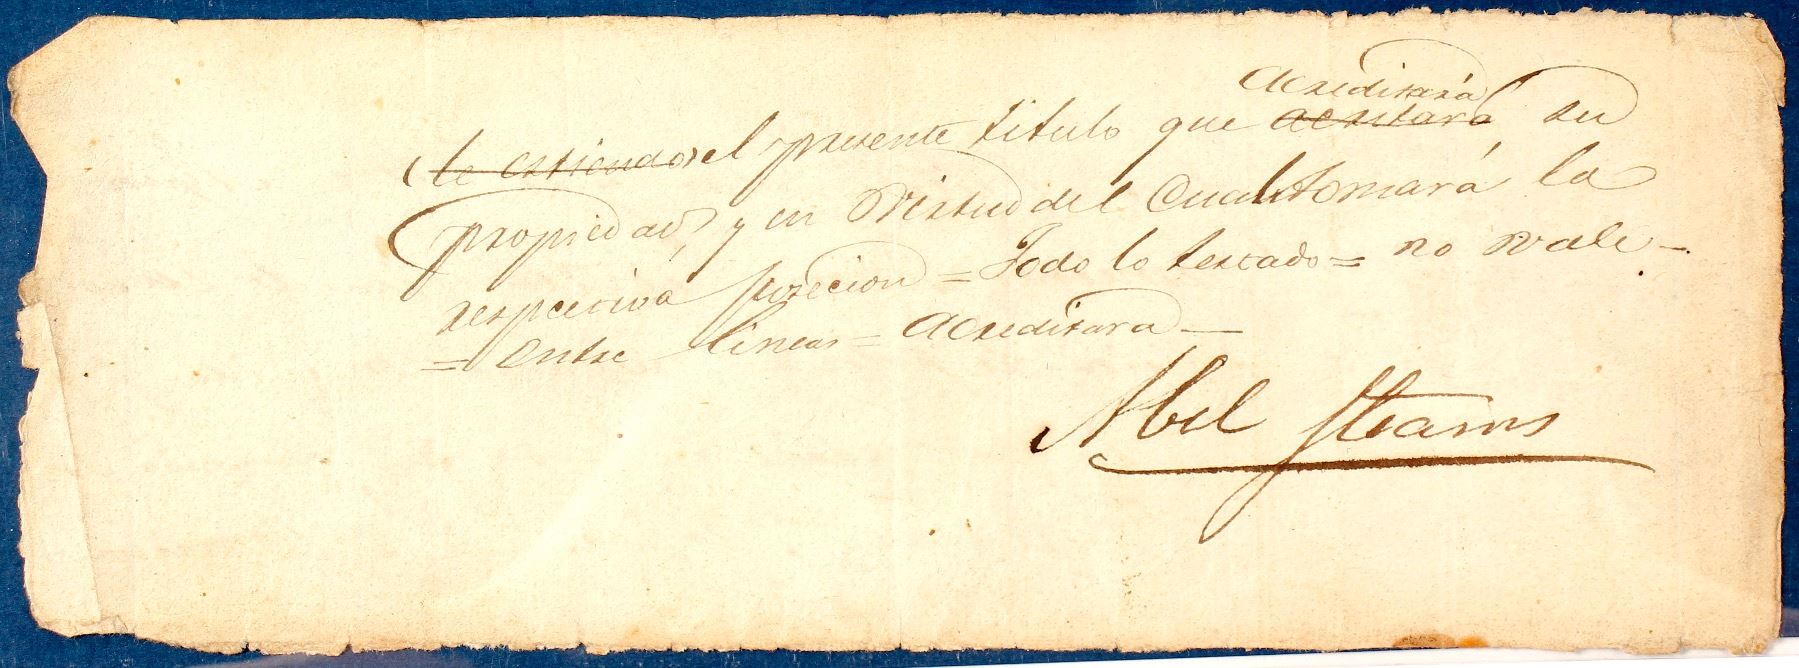 Acreditará
le estiendo el presente titulo que acritará su
propiedad, y en Virtud del Cual tomará la
respectiva posecion = Todo lo textado = no vale -
= Entre lineas = Acreditara -
Abel Stearns